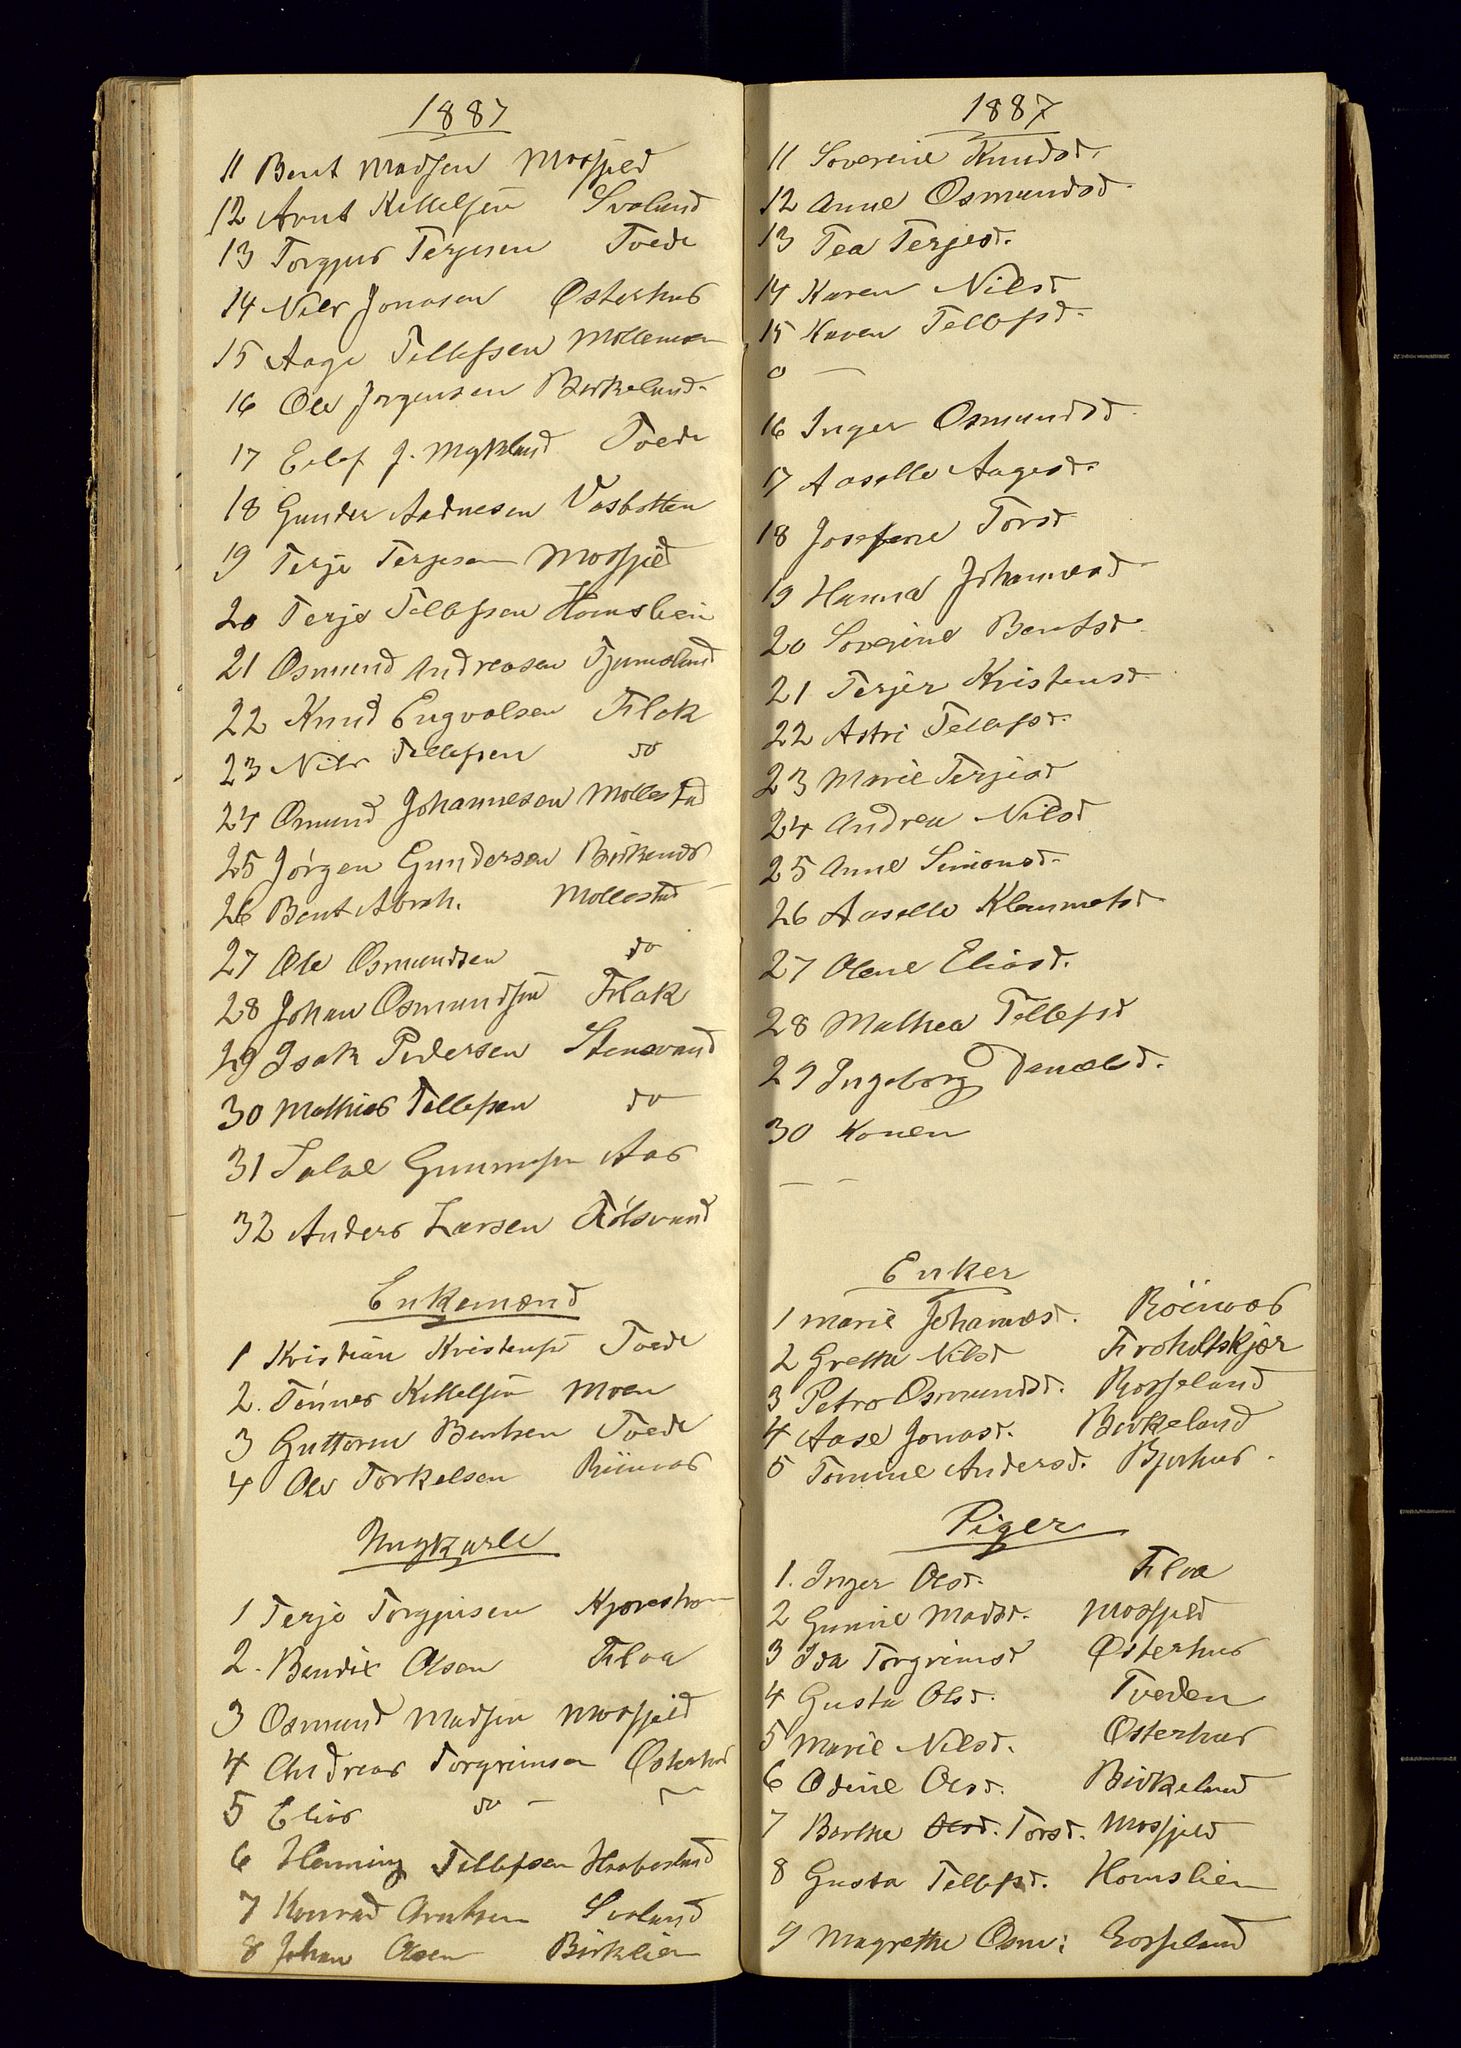 1887
11 Bent Madsen Mosfjeld
12 Arnt Kittelsen Svaland
13 Torgjus Terjesen Tvede
14 Nils Jonasen Østerhus
15 Aage Tellefsen Mollemoen
16 Ole Jørgensen Birkeland
17 Eilef J. Mykland Tvede
18 Gunder Aadnesen Vasbotten
19 Terje Terjesen Mosfjeld
20 Terje Tellefsen Homslien
21 Osmund Andreasen Tjumsland
22 Knud Engvalsen Flak
23 Nils Tellefsen do
24 Osmund Johannesen Mollestad
25 Jørgen Gundersen
26 Bent Abrah. Mollestad
27 Ole Osmundsen do
28 Johan Osmundsen Flak
29 Isak Pedersen Stensvand
30 Mathias Tellefsen do
31 Salve Gunnufsen Aas
32 Anders Larsen
Enkemænd
1 Kristian Kristensen Tvede
2. Tønnes Kittelsen Moen
3 Guttorm Bentsen Tvede
4 Ole Torkelsen Røinaas
Ungkarle
1 Terje Torgjusen
2. Bendix Olsen Flaa
3 Osmund Madsen Mosfjeld
4 Andreas Torgrimsen Østerhus
5 Elias do — —
6 Henning Tellefsen Haabesland
7 Konrad Arntsen Svaland
8 Johan Olsen Birklien
1887
11 Soverine Knudsd.
12 Anne Osmundsd.
13 Tea Terjesd.
14 Karen Nilsd
15 Karen Tellefsd.
0 —
16 Inger Osmundsd.
17 Aaselle Aagesd.
18 Josefine Torsd
19 Hanna Johannesd
20 Soverine Bentsd.
21 Terjer Kristensd
22 Astri Tellefsd.
23 Marie Terjesd
24 Andrea Nilsd
25 Anne Simonsd.
26 Aaselle Klemmetsd
27 Olene Eliasd.
28 Mathea Tellefsd
29 Ingeborg Danielsd.
30 Konen
— —
Enker
1 Marie Johannesd. Røinaas
2 Grethe Nilsd Froholtskjær
3 Petro Osmundsd. Rosseland
4 Aase Jonasd. Birkeland
5 Tomine Andersd. Bjorhus.
Piger
1. Inger Olsd. Flaa
2 Gunnil Madsd. Mosfjeld
3 Ida Torgrimsd Østerhus
4 Gusta Olsd. Tveden
5 Marie Nilsd. Østerhus
6 Odine Olsd. Birkeland
7 Berthe Olsd. Torsd. Mosfjeld
8 Gusta Tellefsd. Homslien
9 Magrethe Osm: